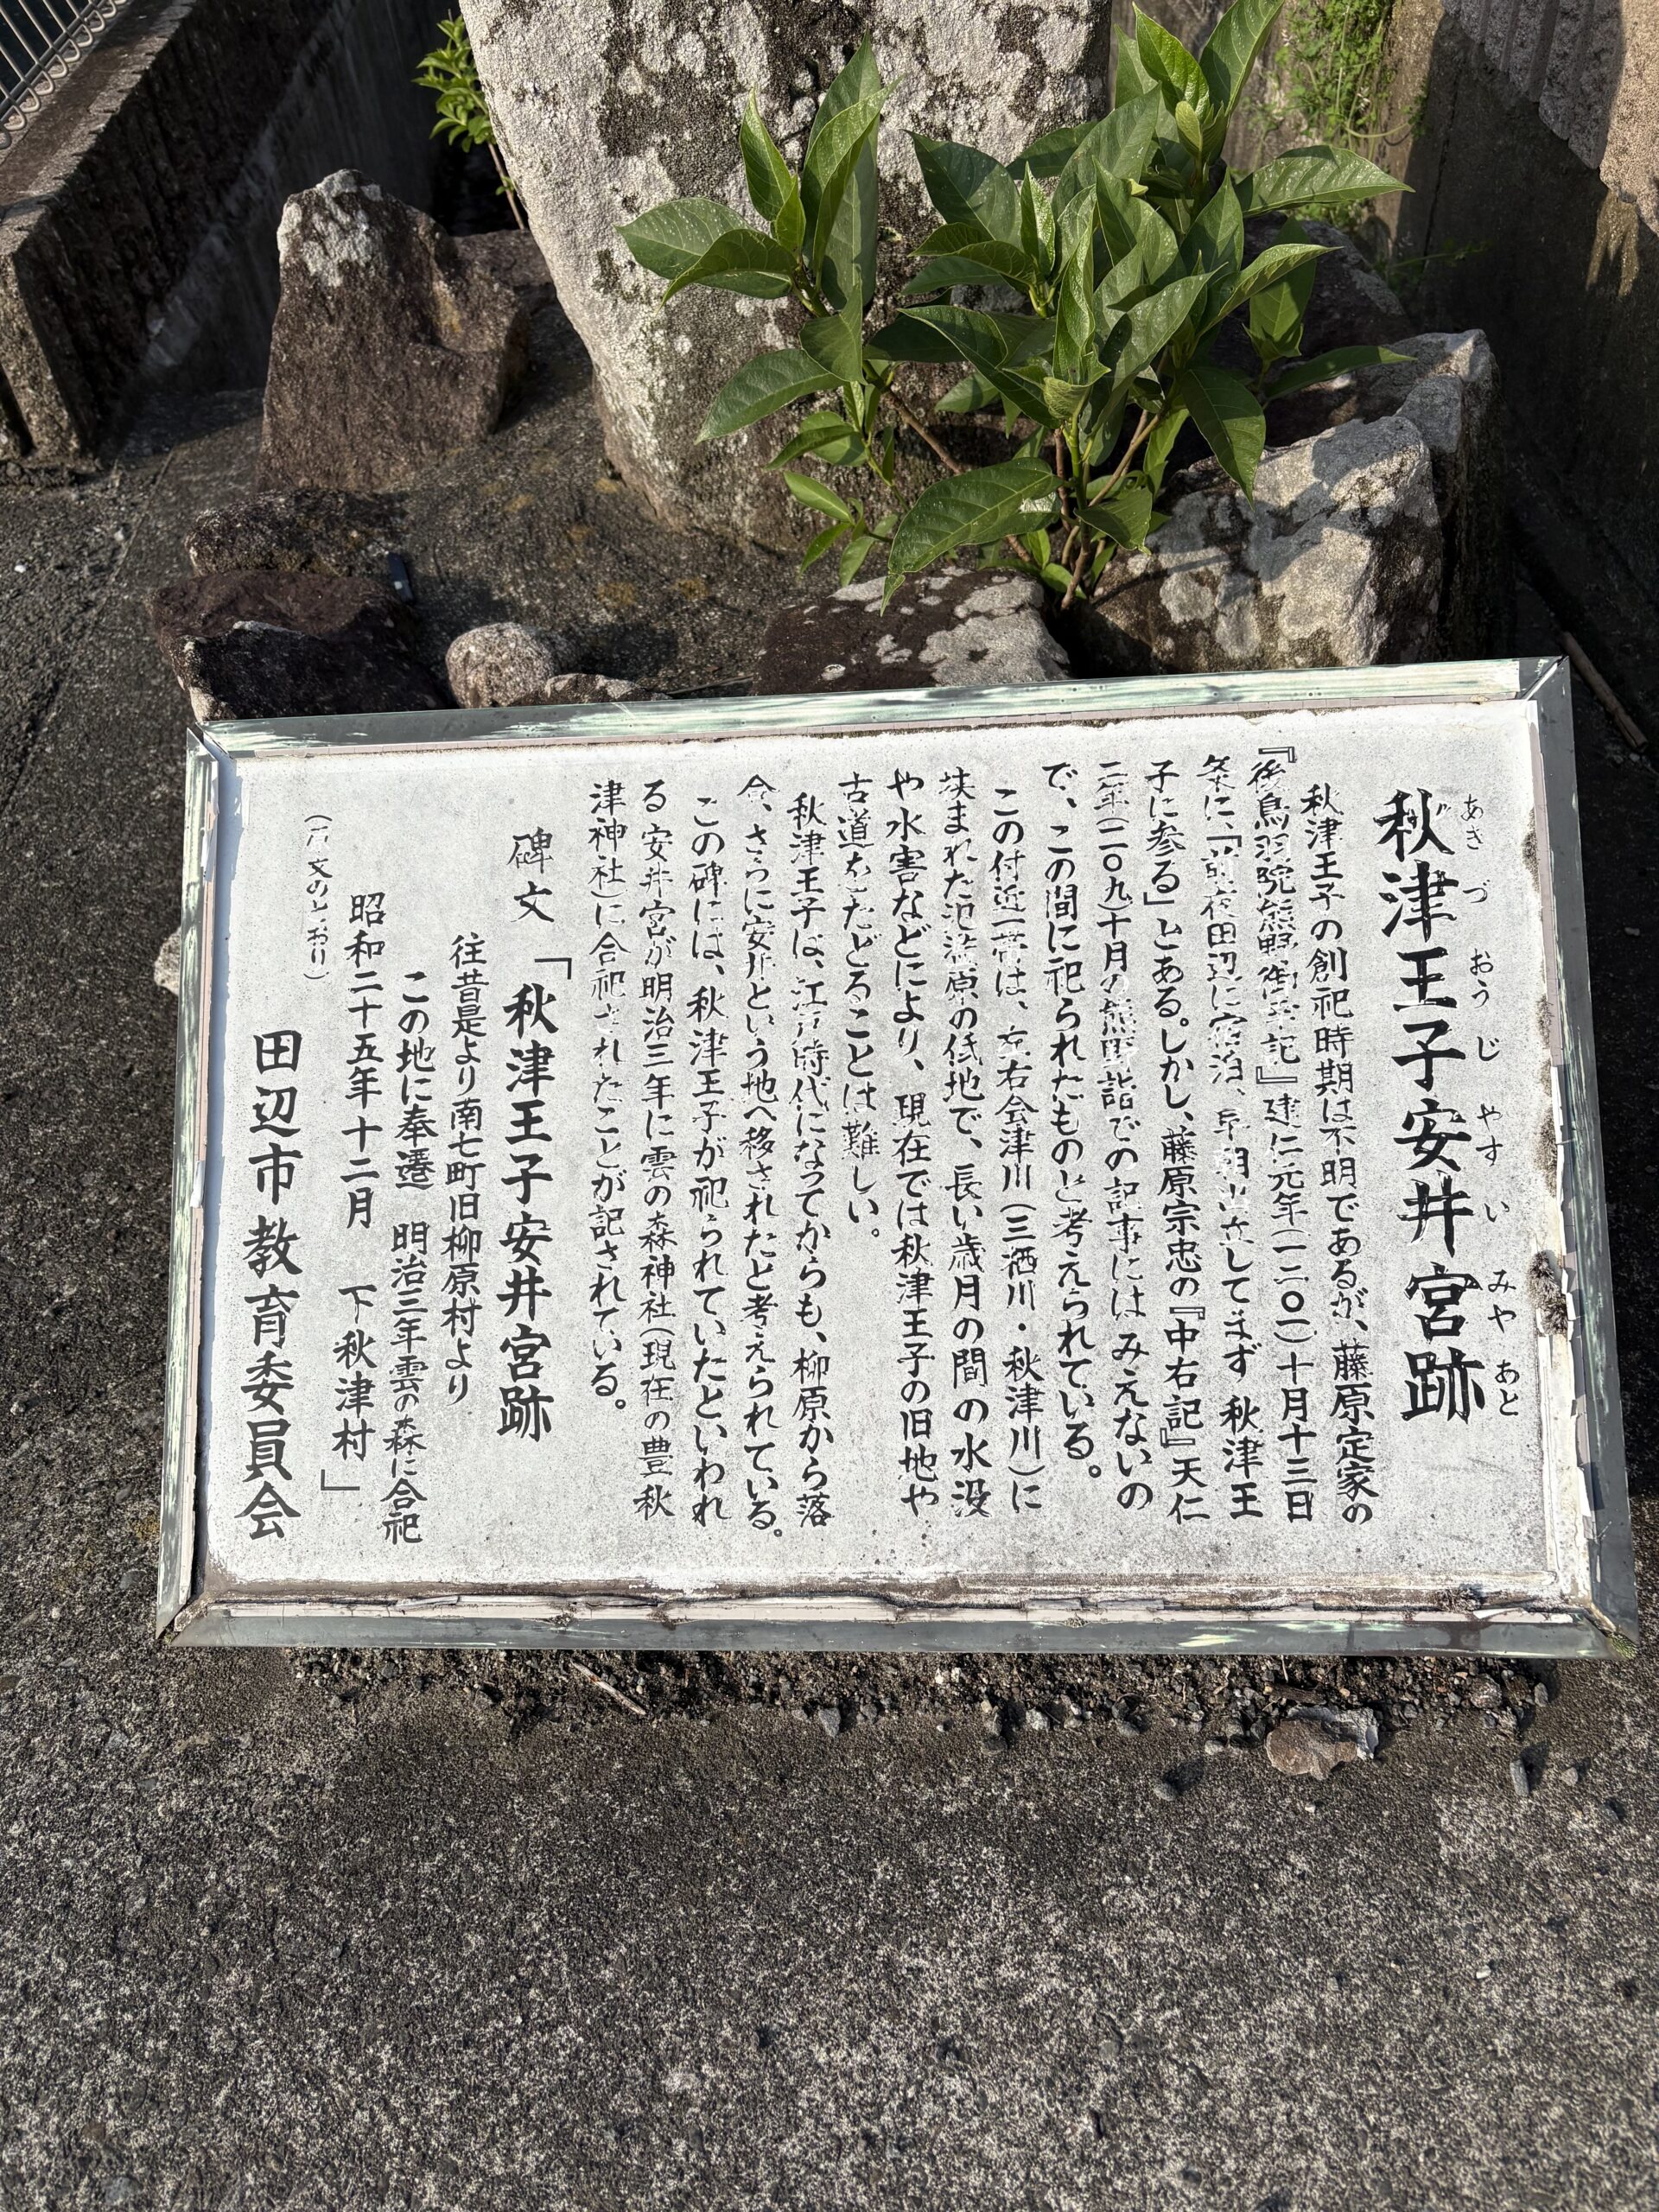 秋津王子安井宮跡
あき づ おう じ やす い みや あと
秋津王子の創祀時期は不明であるが、藤原定家の
『後鳥羽院熊野御幸記』建仁元年(一二〇一)十月十三日
条に、「前夜田辺に宿泊、早朝出立してまず秋津王
子に参る」とある。しかし、藤原宗忠の『中右記』天仁
二年(一一〇九)十月の熊野詣での記事にはみえないの
で、この間に祀られたものと考えられている。
この付近一帯は、左右会津川(三栖川・秋津川)に
挟まれた氾濫原の低地で、長い歳月の間の水没
や水害などにより、現在では秋津王子の旧地や
古道をたどることは難しい。
秋津王子は、江戸時代になってからも、柳原から落
合、さらに安井という地へ移されたと考えられている。
この碑には、秋津王子が祀られていたといわれ
る安井宮が明治三年に雲の森神社(現在の豊秋
津神社)に合祀されたことが記されている。
碑文「秋津王子安井宮跡
往昔是より南七町旧柳原村より
この地に奉遷 明治三年雲の森に合祀
昭和二十五年十二月 下秋津村」
文のとおり)
田辺市教育委員会